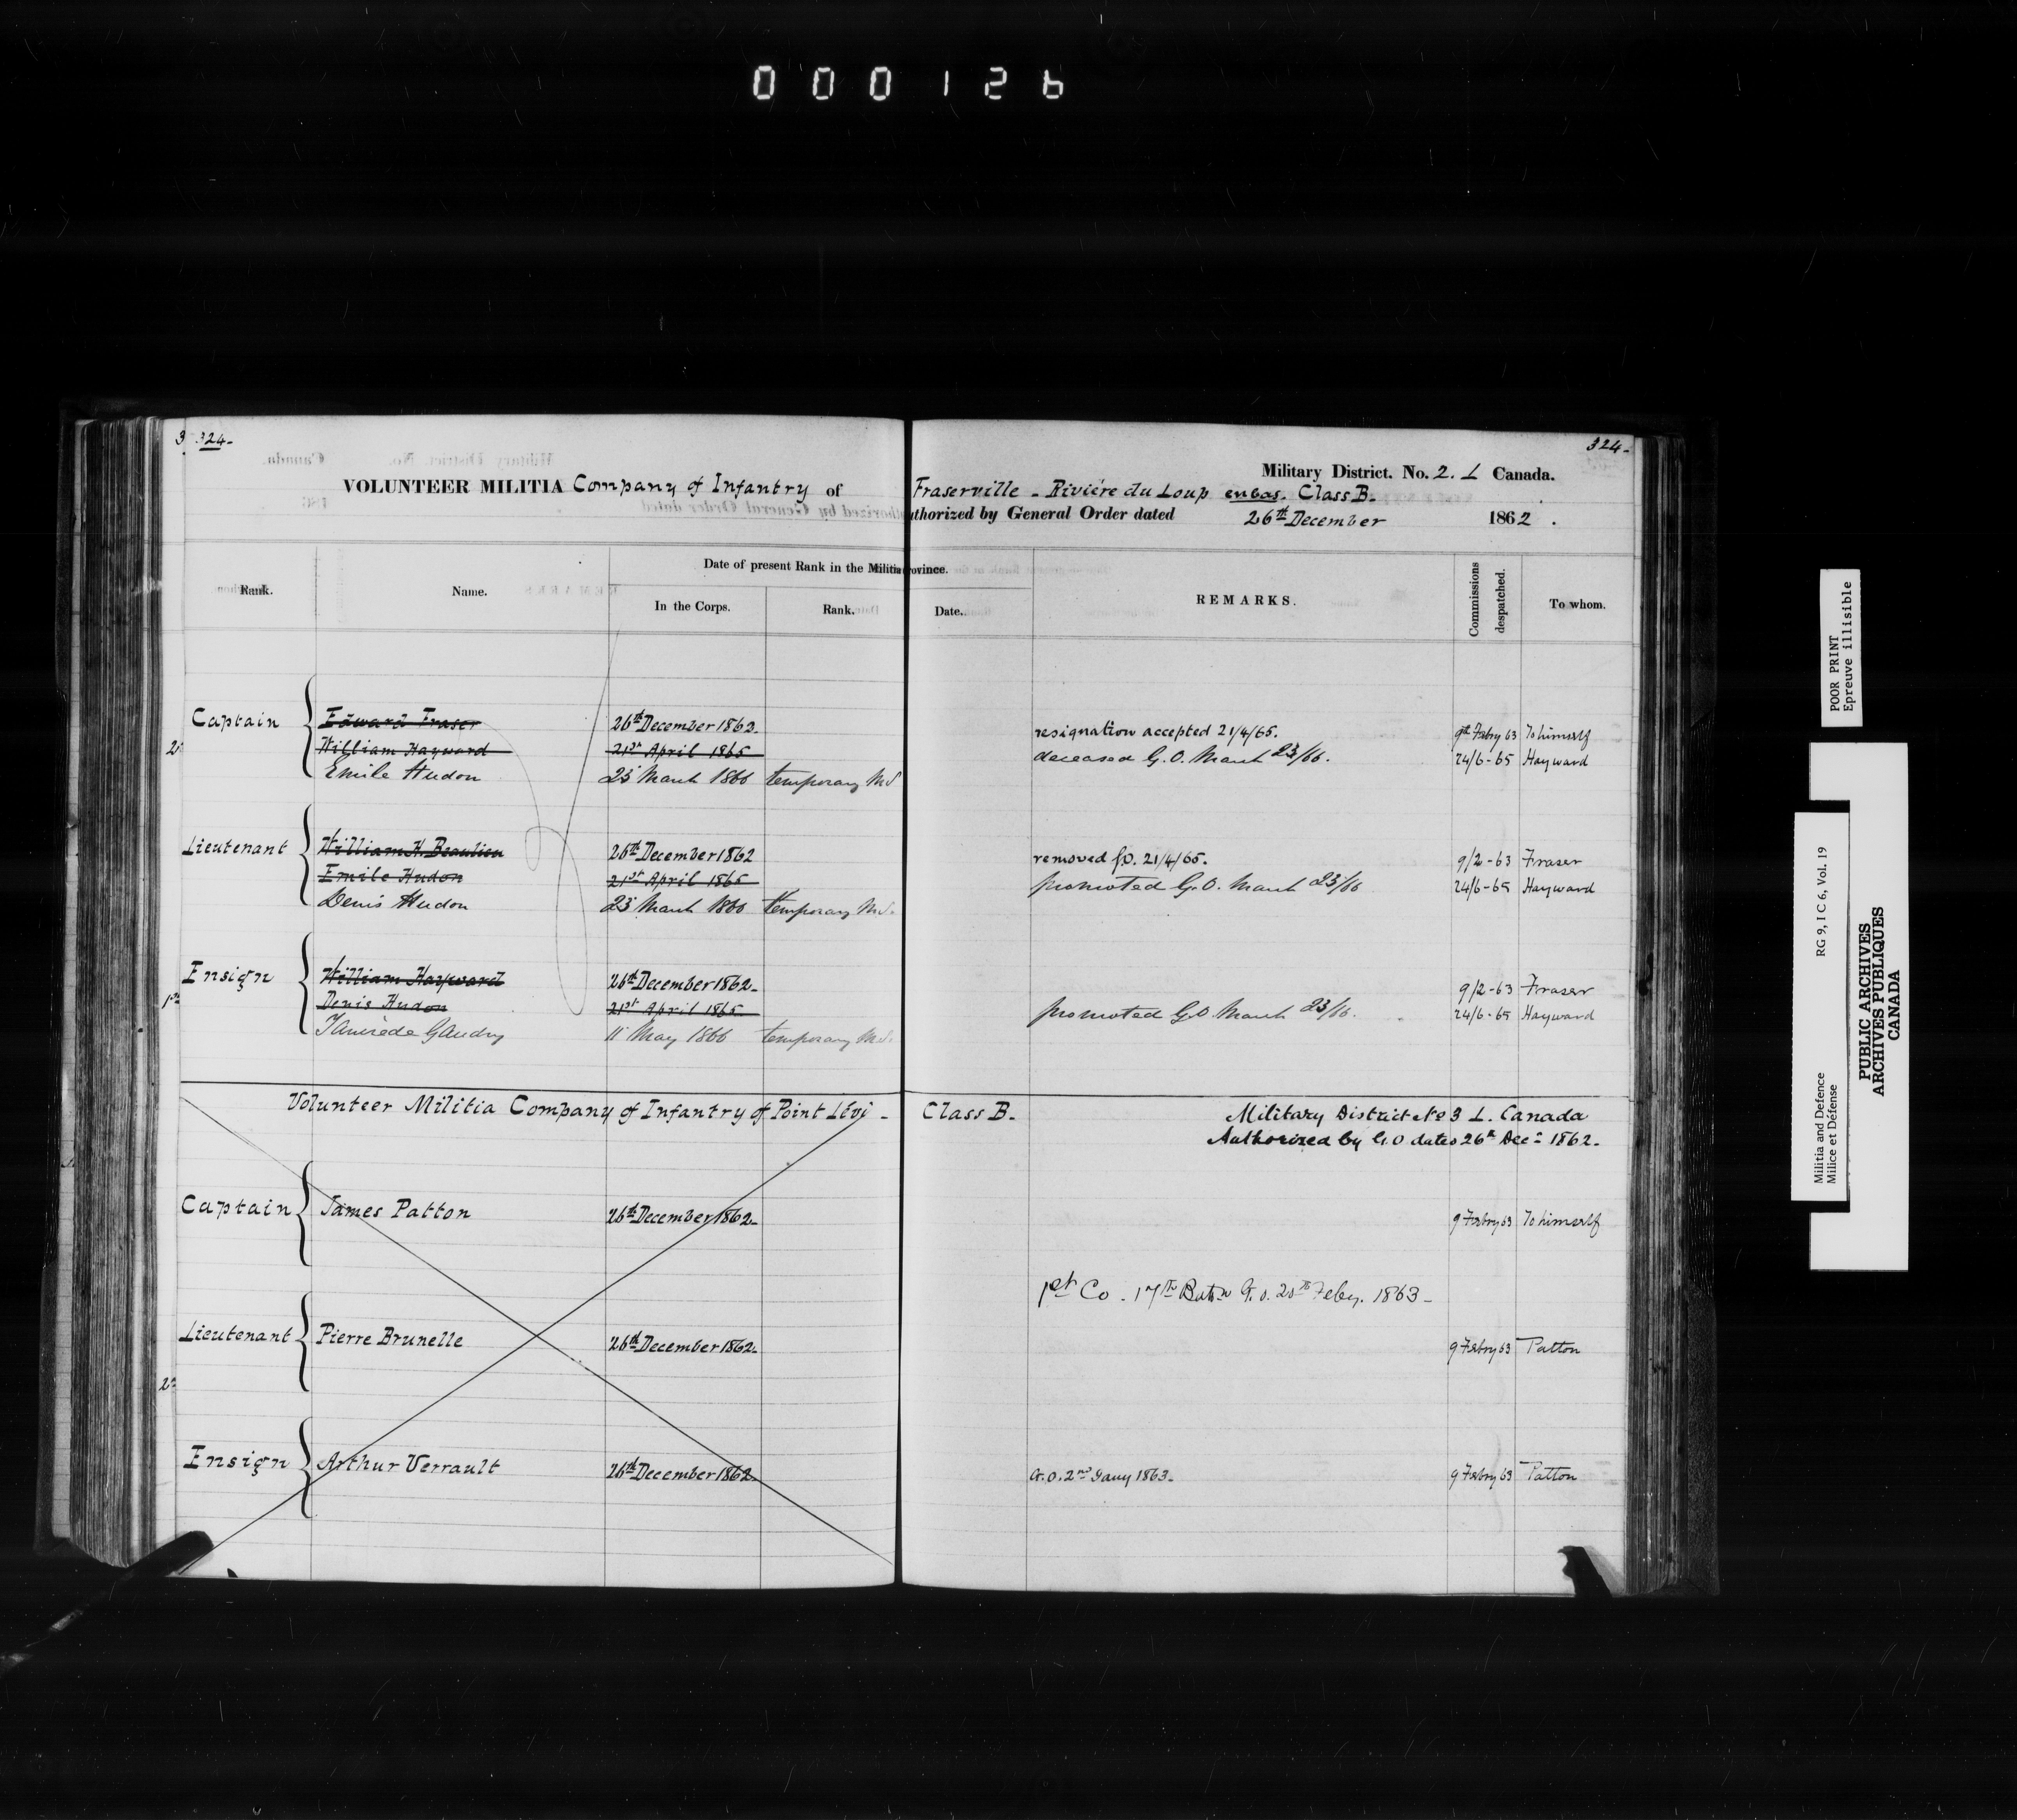 000126
3 324-
324-
Military District. No. 2. L Canada.
VOLUNTEER MILITIA Company of Infantry of Fraserville - Riviére du Loup en bas. Class B.
thorized by General Order dated 26th December 1862.
Date of present Rank in the Militia rovince.
Rank. Name. In the Corps. Rank. Date. REMARKS. Commissions despatched. To whom.
Captain Edward Fraser 26th December 1862. resignation accepted 21/4/65. 9th Febry 63 To himself
William Hayward 21st April 1865 deceased G.O. March 23/66. 24/6-65 Hayward
Emile Hudon 23 March 1866 temporary
Lieutenant William H. Beaulieu 26th December 1862 removed 21/4/65. 9/2-63 Fraser
Emile Hudon 21st April 1865 promoted G.O. March 23/66 24/6-65 Hayward
Denis Hudon 23 March 1866 temporary
Ensign William Hayward 26th December 1862. 9/2-63 Fraser
Denis Hudon 21st April 1865 promoted G.O March 23/66. 24/6-65 Hayward
Tancrede Gaudry 11 May 1866 temporary
Volunteer Militia Company of Infantry of Point Lévi - Class B. Military District No 3 L. Canada
Authorized by G.O dated 26th Decr 1862.
Captain James Patton 26th December 1862. 9 Febry 63 To himself
1st Co. 17th Battn G.O. 20th Feby. 1863-
Lieutenant Pierre Brunelle 26th December 1862. 9 Febry 63 Patton
Ensign Arthur Verrault 26th December 1862. G.O. 2nd Jany 1863. 9 Febry 63 Patton
POOR PRINT
Epreuve illisible
Militia and Defence RG 9, I C 6, Vol. 19
Milice et Défense
PUBLIC ARCHIVES
ARCHIVES PUBLIQUES
CANADA